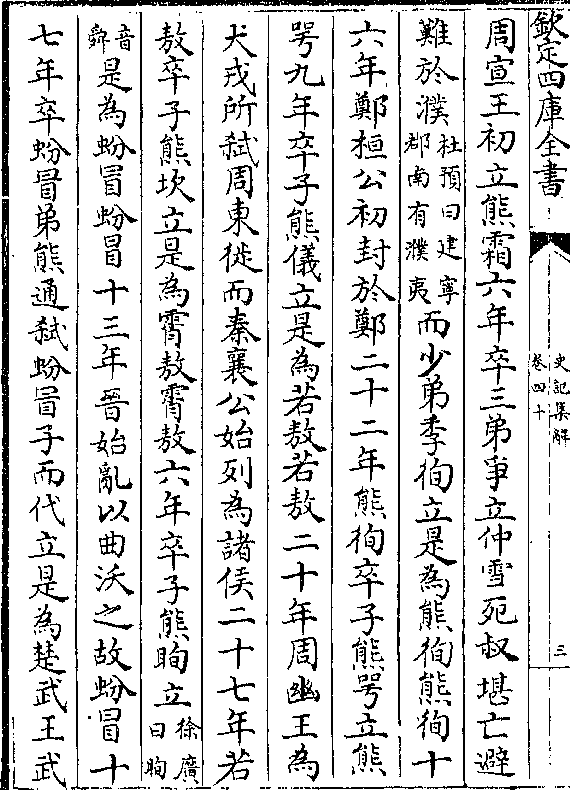 欽定四庫全書
史記集解
卷四十
三
周宣王初立熊霜六年卒三弟爭立仲雪死叔堪亡避
難於濮杜預曰建寧郡南有濮夷而少弟季徇立是為熊徇熊徇十
六年鄭桓公初封於鄭二十二年熊徇卒子熊咢立熊
咢九年卒子熊儀立是為若敖若敖二十年周幽王為
犬戎所弑周東徙而秦襄公始列為諸侯二十七年若
敖卒子熊坎立是為霄敖霄敖六年卒子熊眴立徐廣曰眴
音舜是為蚡冒蚡冒十三年晉始亂以曲沃之故蚡冒十
七年卒蚡冒弟熊通弑蚡冒子而代立是為楚武王武